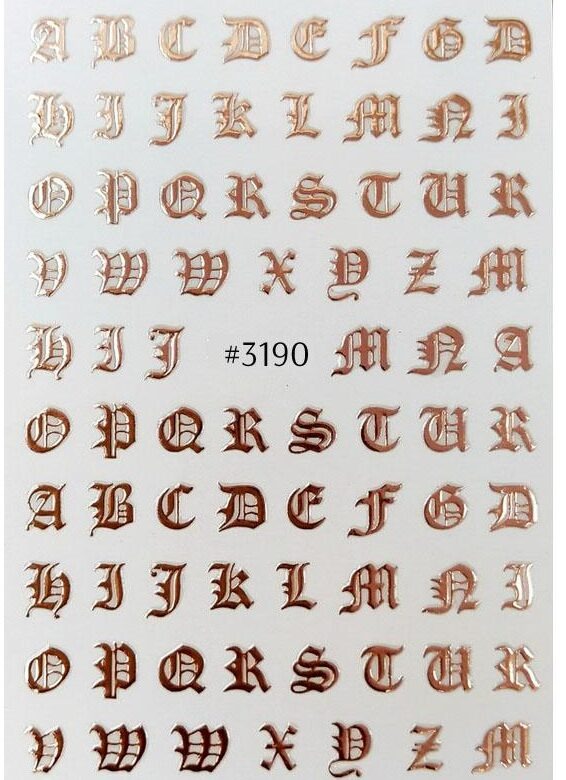 A B C D E F G D
H I J K L M N I
O P Q R S T U R
V W W X Y Z M
H I J #3190 M N A
O P Q R S T U R
A B C D E F G D
H I J K L M N I
O P Q R S T U R
V W W X Y Z M